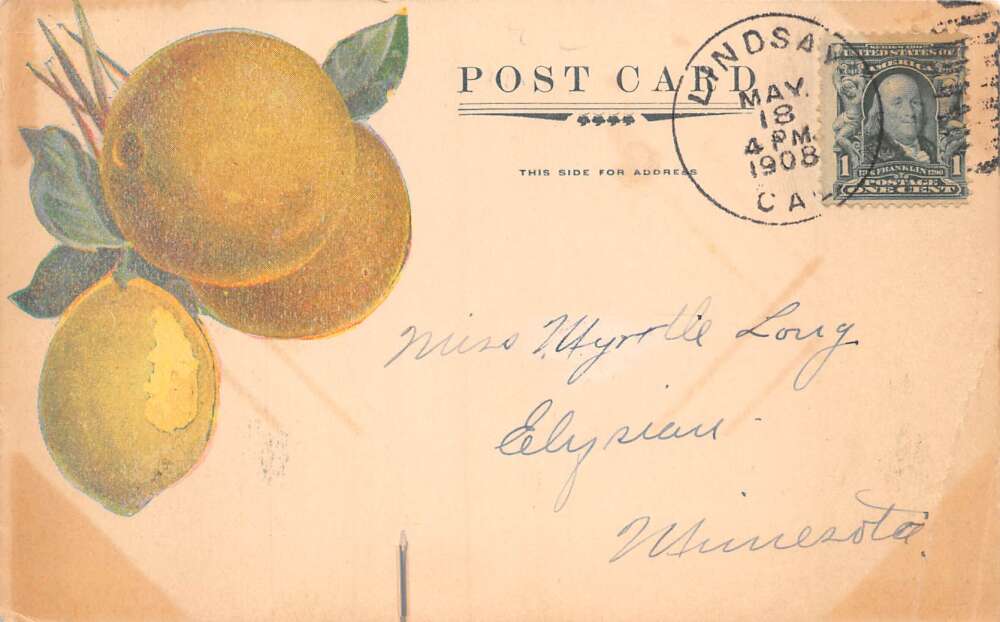 POST CARD
THIS SIDE FOR ADDRESS
LINDSAY
MAY.
18
4 PM.
1908
CAL
SERIES 1902
UNITED STATES OF
AMERICA
1 FRANKLIN 1790 1
POSTAGE
ONE CENT
Miss Myrtle Long
Elysian
Minnesota